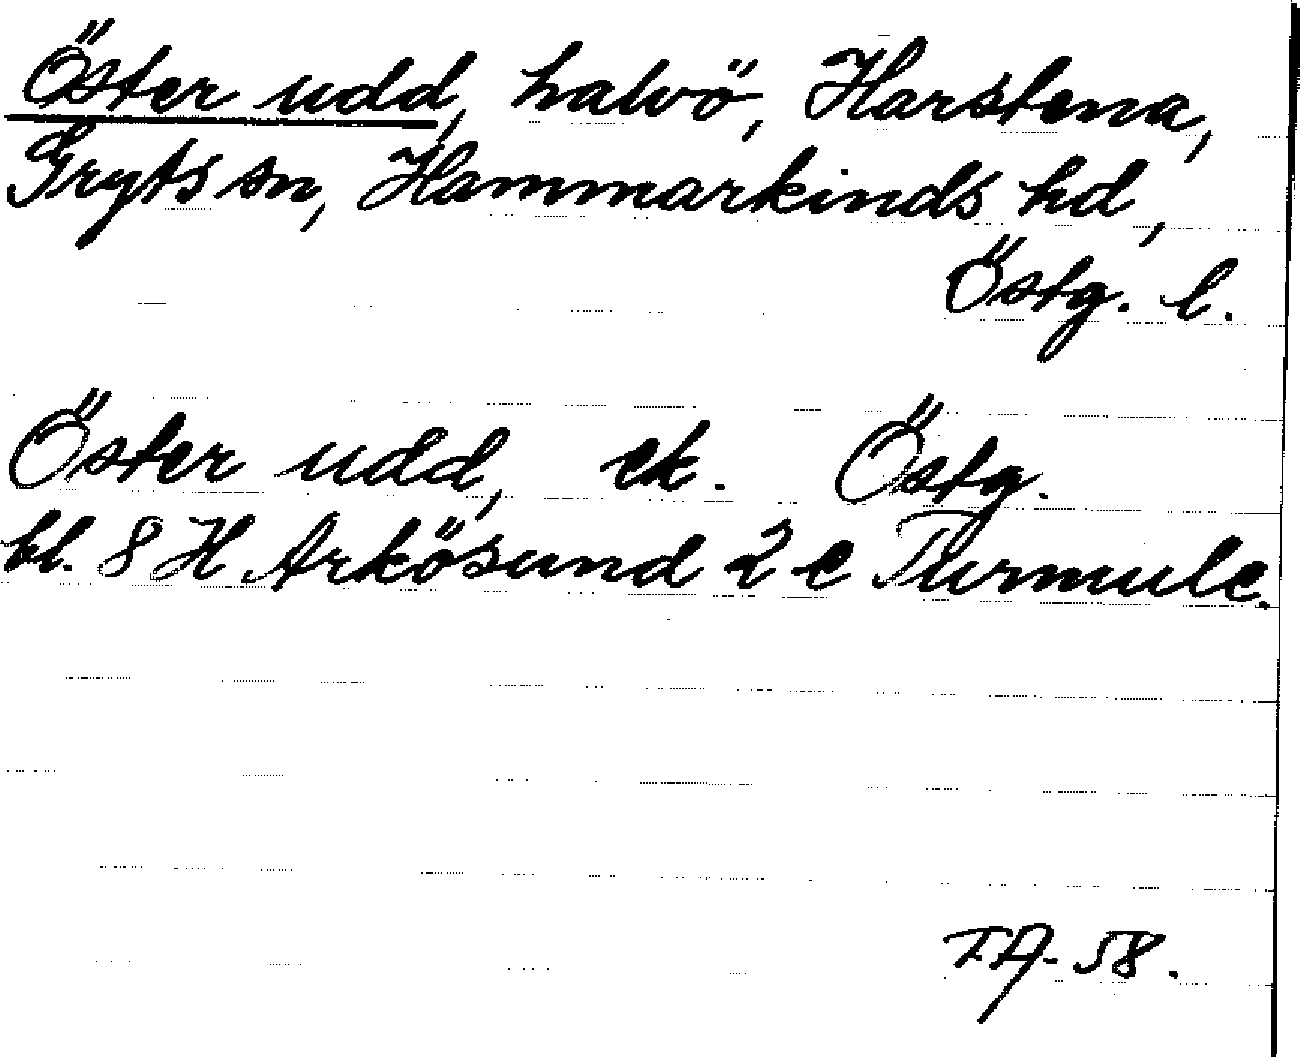 Öster udd, halvö, Harstena,
Gryts sn, Hammarkinds hd,
Östg. l.
Öster udd, ek. Östg.
bl. 8 H Arkösund 2 e Turmule.
TA-58.